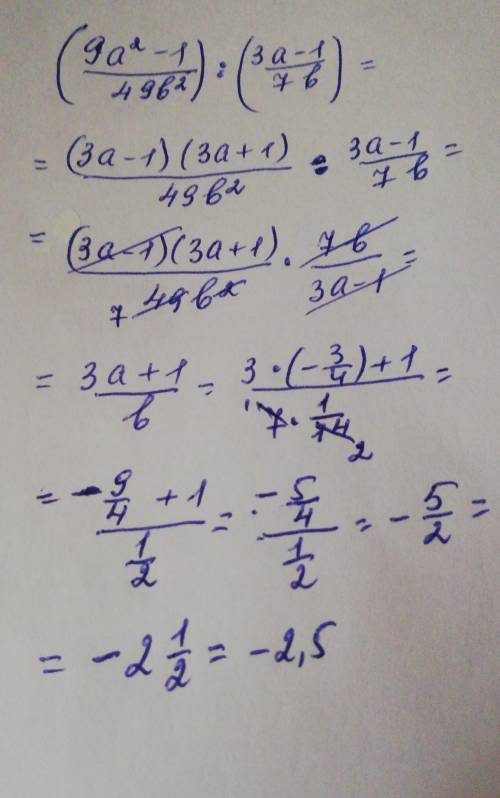 (9a² - 1 / 49b²) : (3a - 1 / 7b) =
= (3a - 1)(3a + 1) / 49b² : 3a - 1 / 7b =
= (3a - 1)(3a + 1) / 7 49b² · 7b / 3a - 1 =
= 3a + 1 / b = 3 · (-3/4) + 1 / 7 · 1/14 2 =
= -9/4 + 1 / 1/2 = -5/4 / 1/2 = -5/2 =
= -2 1/2 = -2,5